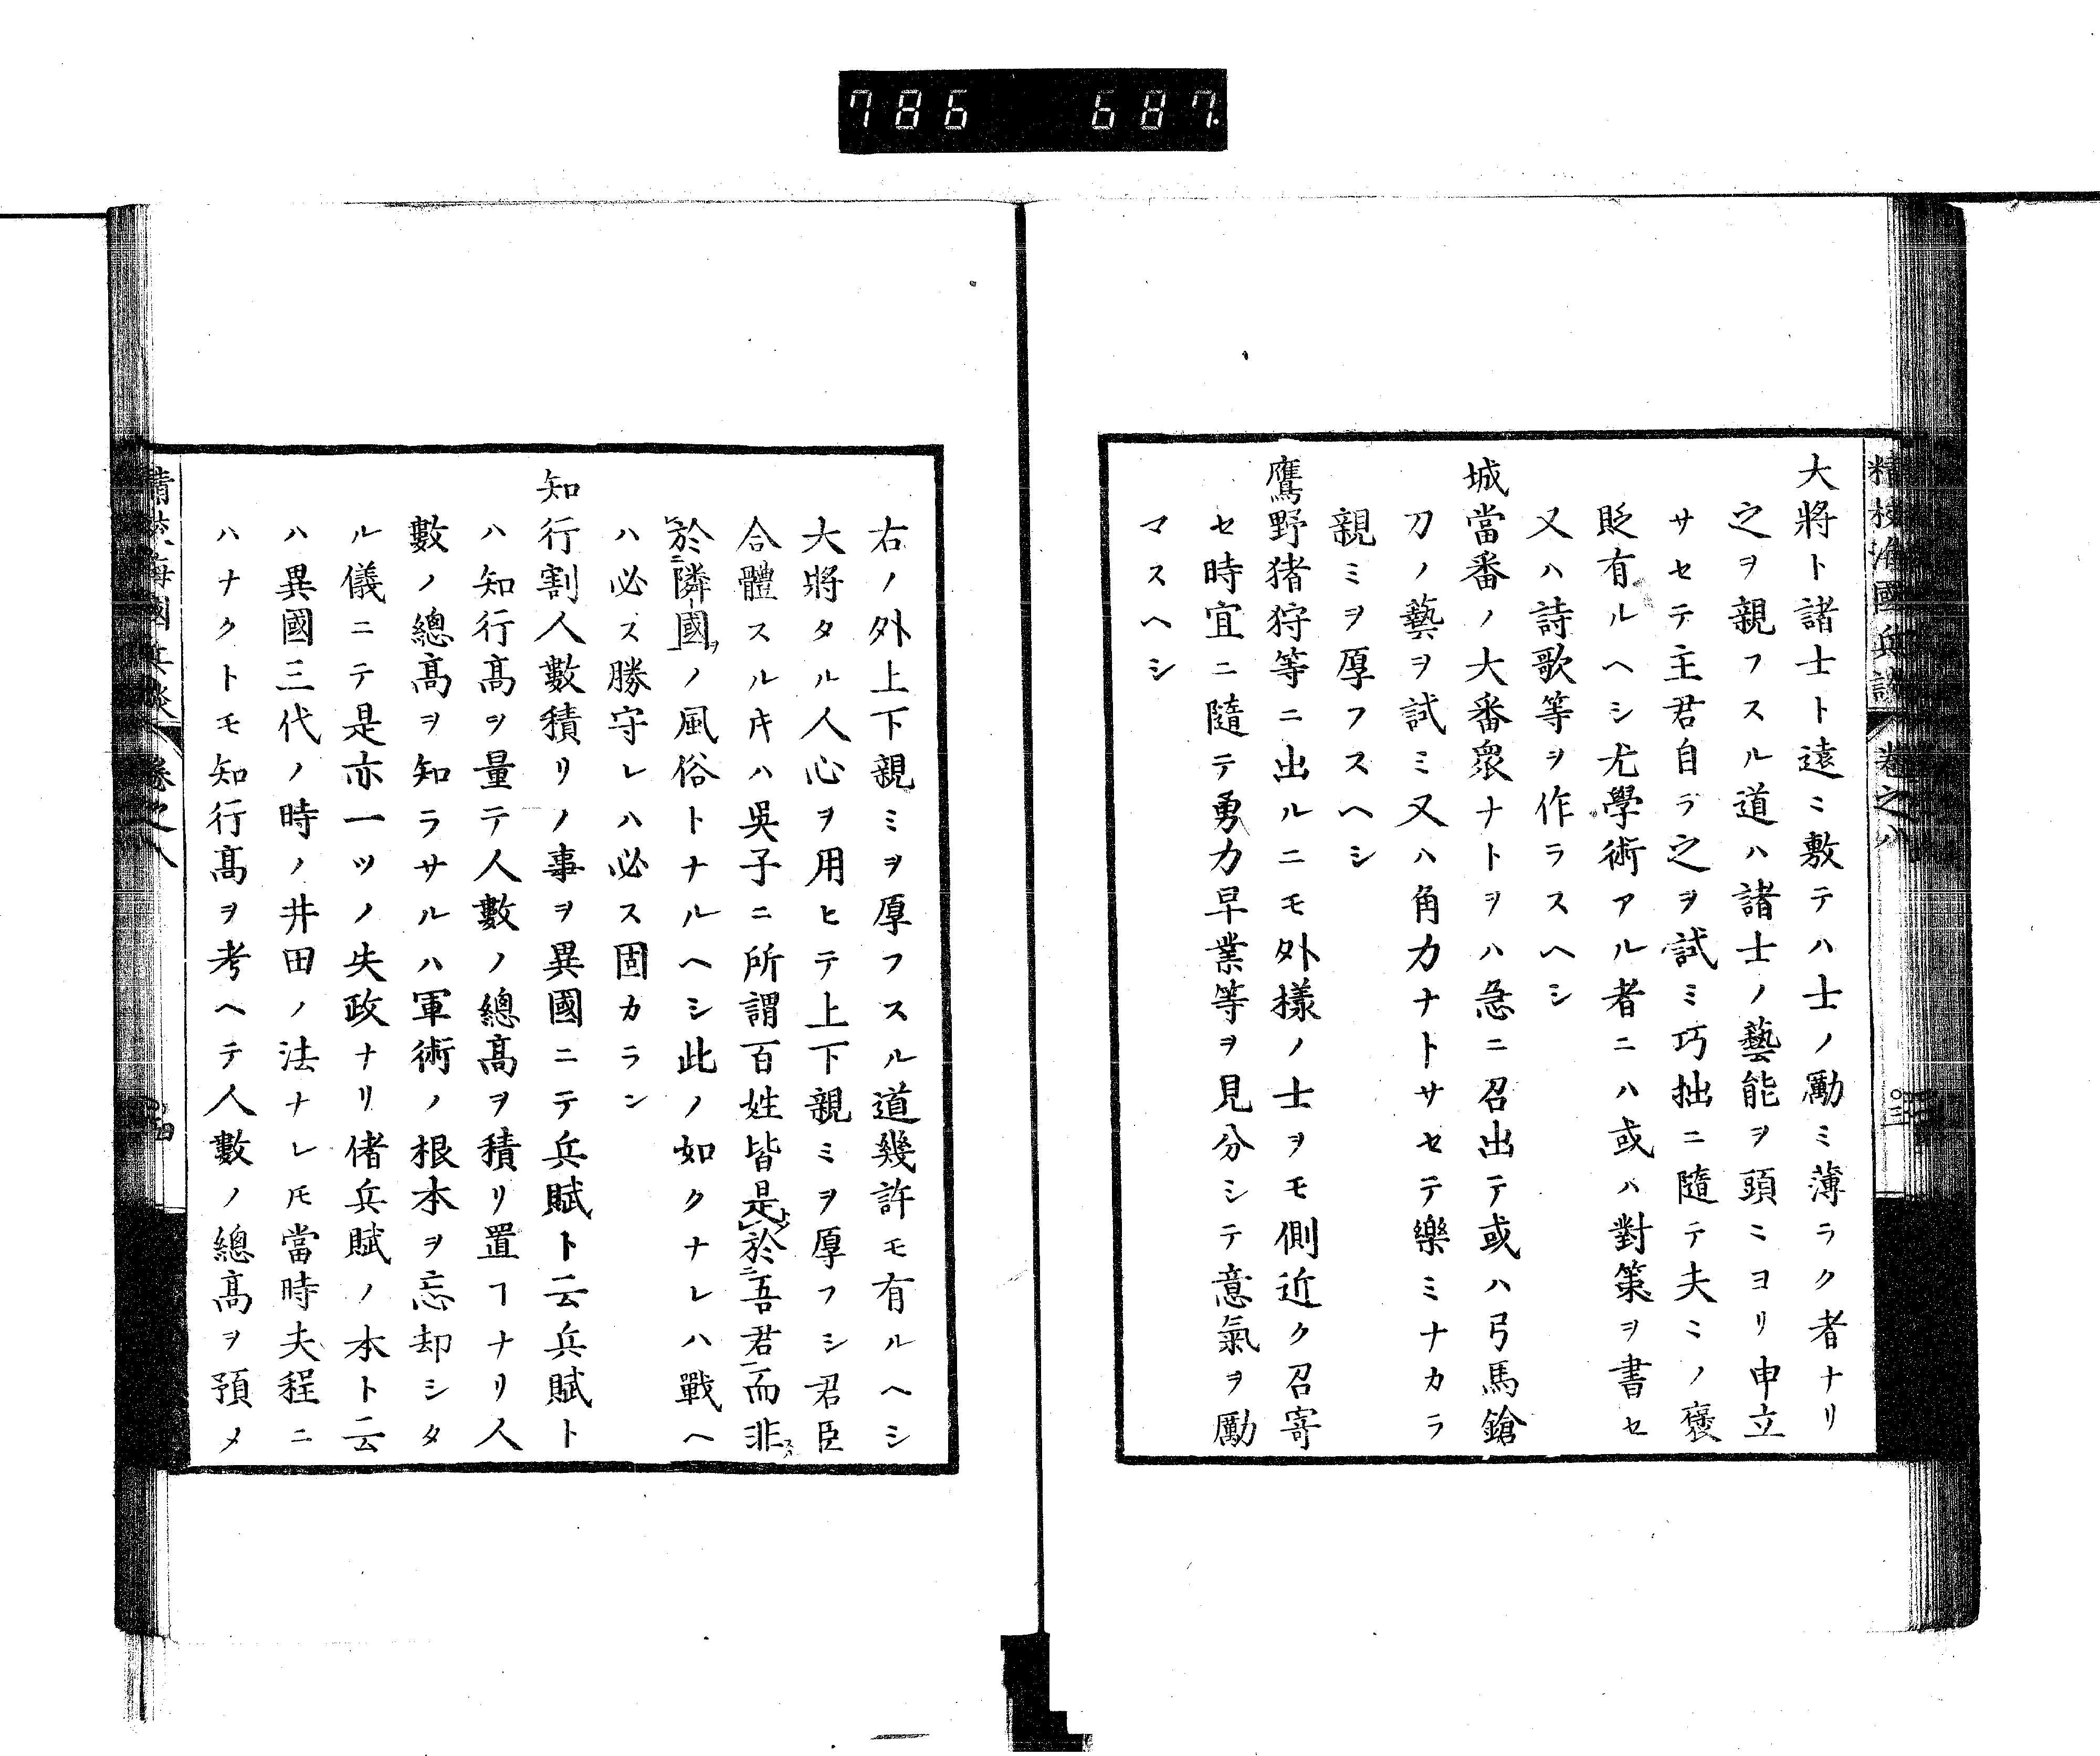 786 687
精校海國兵談 卷之八
大將ト諸士ト遠ミ敷テハ士ノ勵ミ薄ラク者ナリ
之ヲ親フスル道ハ諸士ノ藝能ヲ頭ミヨリ申立
サセテ主君自ラ之ヲ試ミ巧拙ニ隨テ夫ミノ褒
貶有ルヘシ尤學術アル者ニハ或ハ對策ヲ書セ
又ハ詩歌等ヲ作ラスヘシ
城當番ノ大番衆ナトヲハ急ニ召出テ或ハ弓馬鎗
刀ノ藝ヲ試ミ又ハ角力ナトサセテ樂ミナカラ
親ミヲ厚フスヘシ
鷹野猪狩等ニ出ルニモ外樣ノ士ヲモ側近ク召寄
セ時宜ニ隨テ勇力早業等ヲ見分シテ意氣ヲ勵
マスヘシ
右ノ外上下親ミヲ厚フスル道幾許モ有ルヘシ
大將タル人心ヲ用ヒテ上下親ミヲ厚フシ君臣
合體スル𪜈ハ吳子ニ所謂百姓皆是於吾君而非
於隣國ノ風俗トナルヘシ此ノ如クナレハ戰ヘ
ハ必ス勝守レハ必ス固カラン
知行割人數積リノ事ヲ異國ニテ兵賦ト云兵賦ト
ハ知行高ヲ量テ人數ノ總高ヲ積リ置ヿナリ人
數ノ總高ヲ知ラサルハ軍術ノ根本ヲ忘却シタ
ル儀ニテ是亦一ツノ失政ナリ偖兵賦ノ本ト云
ハ異國三代ノ時ノ井田ノ法ナレ𪜈當時夫程ニ
ハナクトモ知行高ヲ考ヘテ人數ノ總高ヲ預メ
精校海國兵談 卷之八